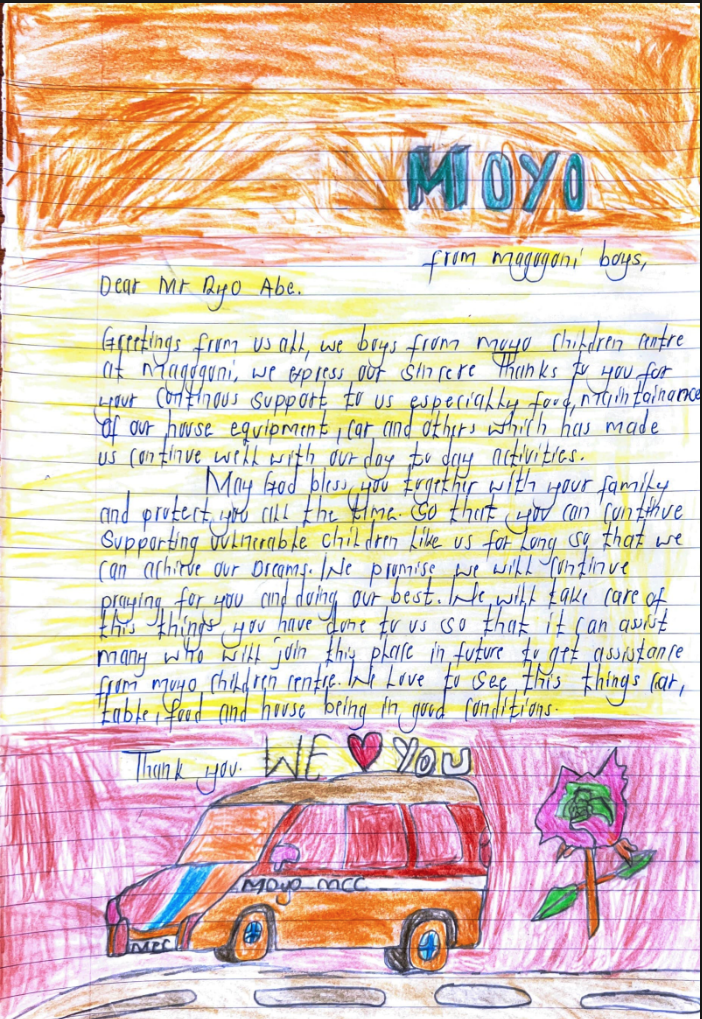 MOYO
from magogoni boys,
Dear Mr Ryo Abe.
Greetings from us all, we boys from moyo children centre
at Magogoni, we express our sincere Thanks to you for
your continous support to us especially food, maintainance
of our house equipment, car and others which has made
us continue well with our day to day activities.
May God bless you together with your family
and protect you all the time. So that you can continue
Supporting vulnerable children like us for Long so that we
can achieve our Dreams. We promise we will continue
praying for you and doing our best. We will take care of
this things you have done to us so that it can assist
many who will join this place in future to get assistance
from moyo children centre. We Love to see this things car,
table, food and house being in good conditions.
Thank you. WE ❤ YOU
Moyo MCC
MCC